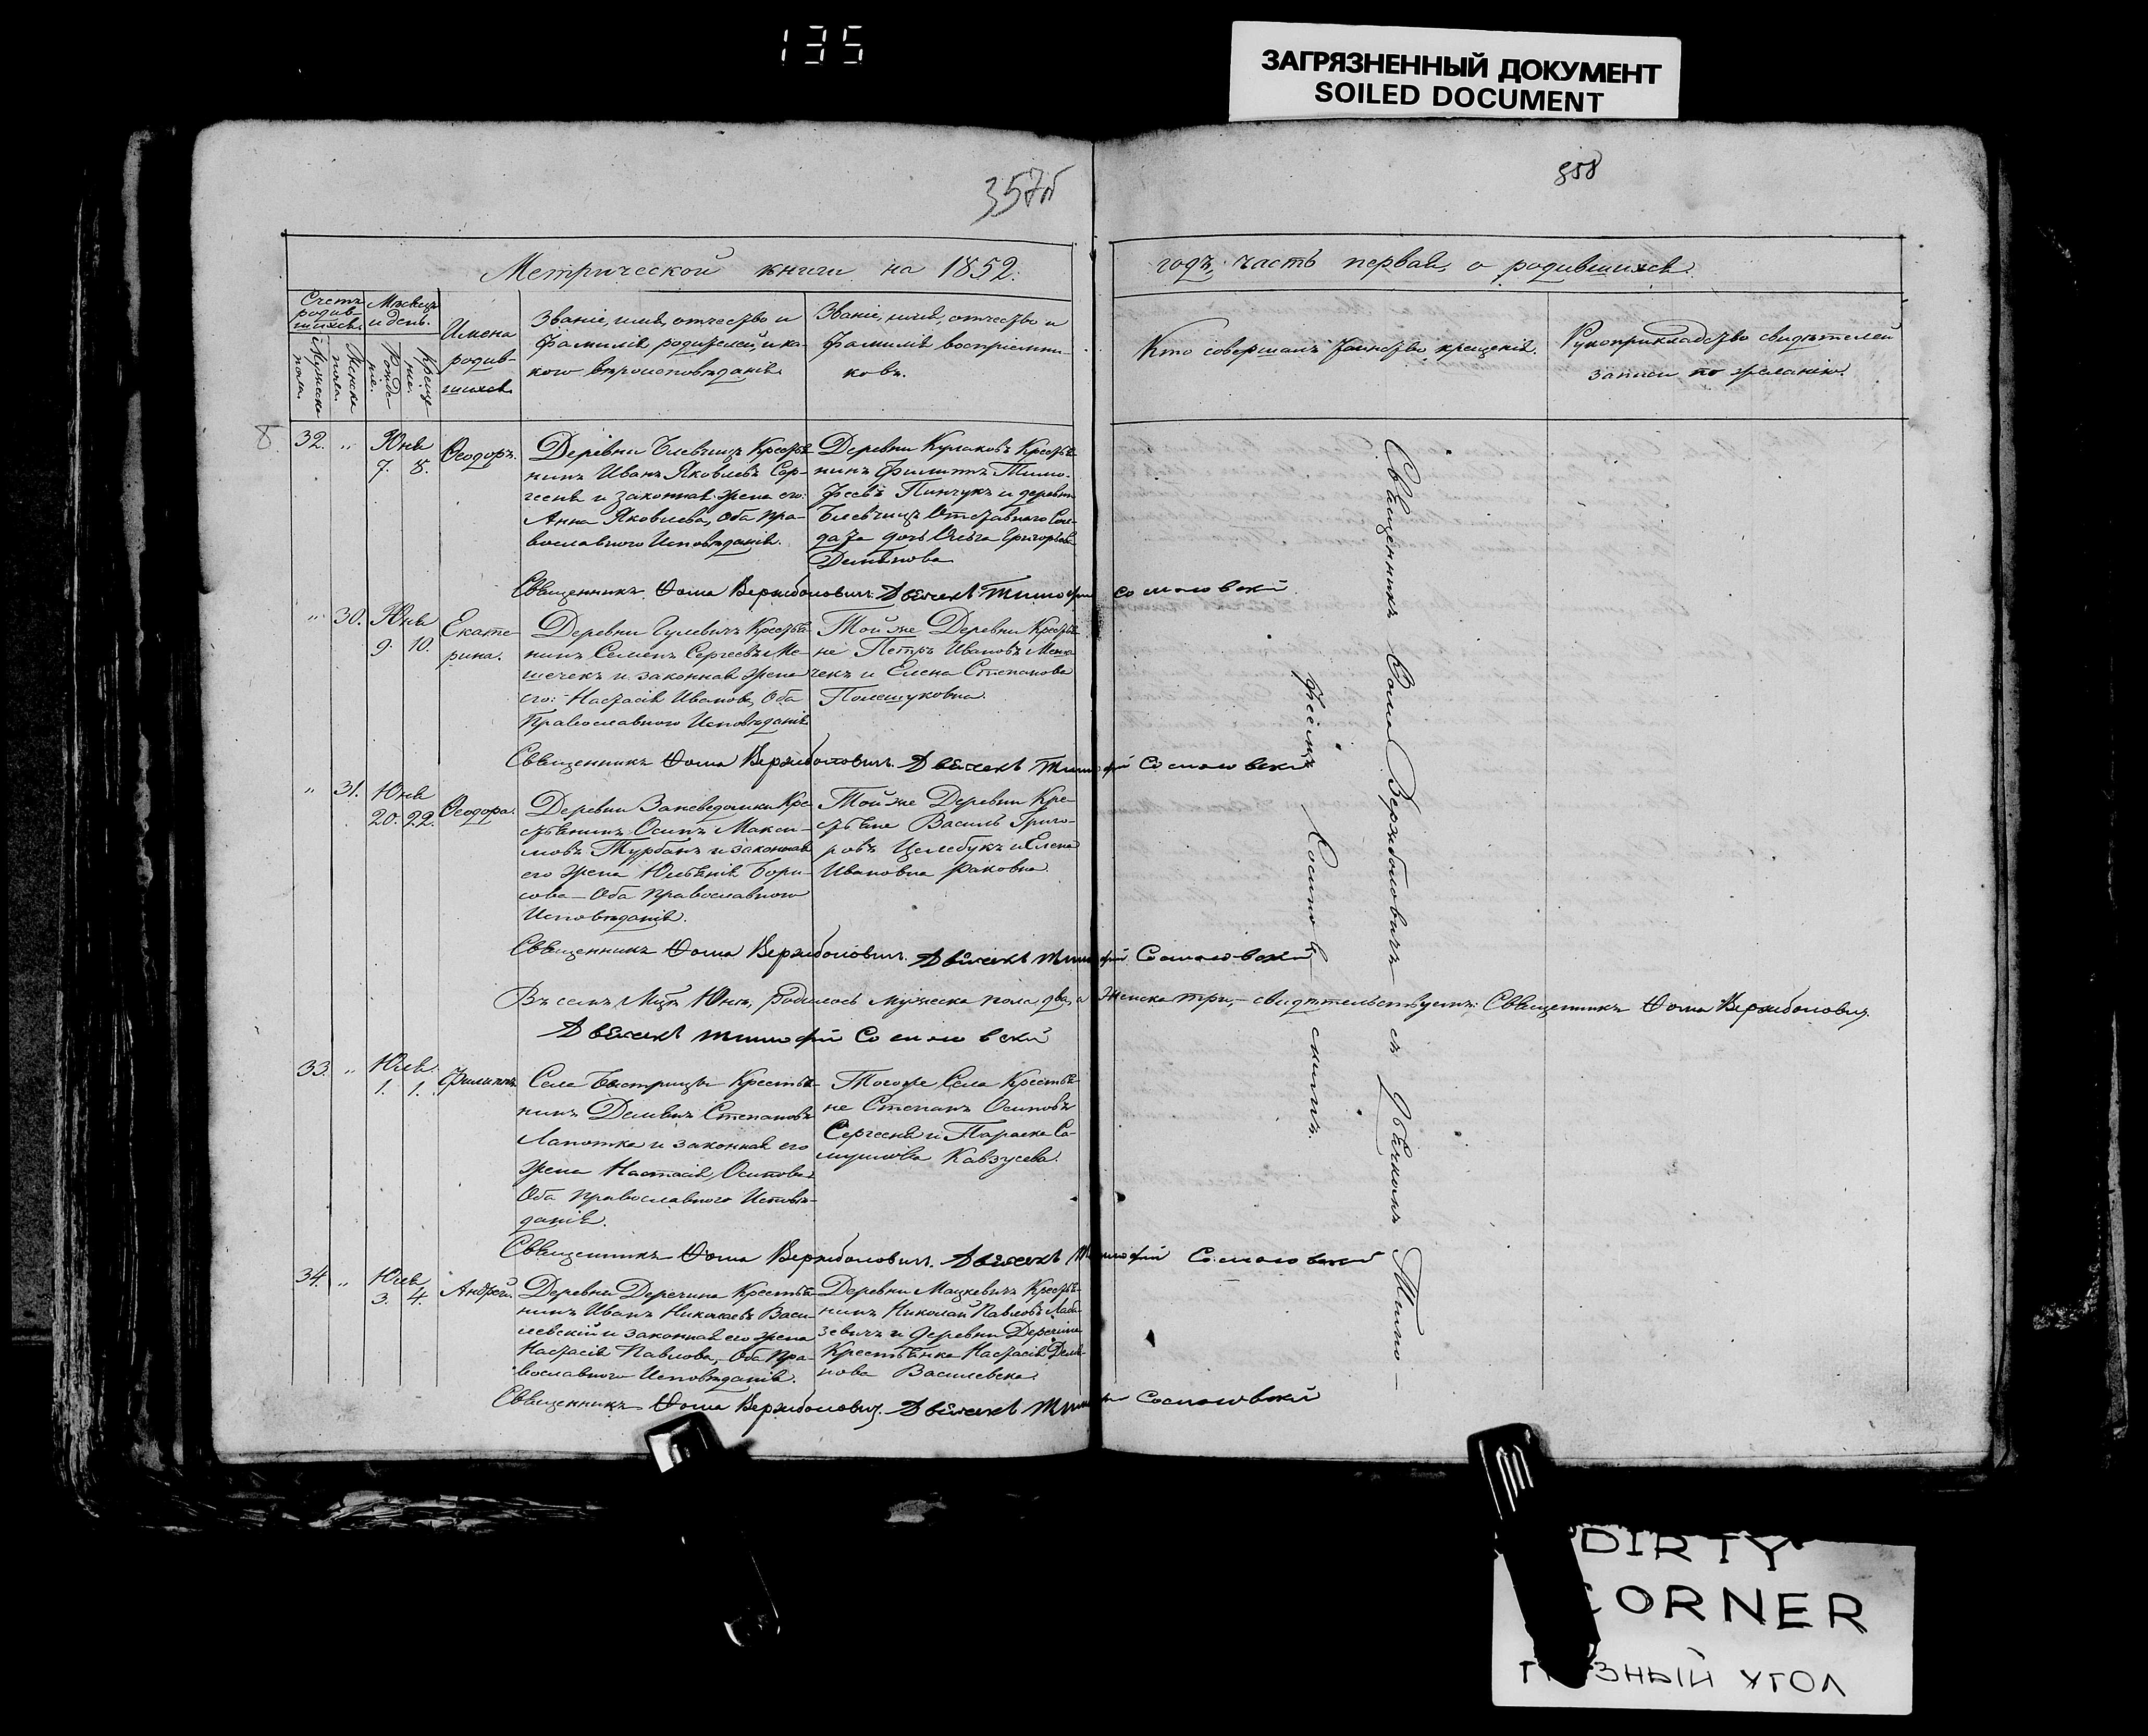 135
ЗАГРЯЗНЕННЫЙ ДОКУМЕНТ
SOILED DOCUMENT
357
358
Метрической книги на 1852.
годъ, часть первая, о родившихся.
Счетъ родив-
шихся.
Мужеска
пола.
Женска
пола.
Мѣсяцъ
и день.
Рожде
нія.
Креще
нія.
Имена
родив-
шихся.
Званіе, имя, отчество и
фамилія родителей, и ка-
кого вѣроисповѣданія.
Званіе, имя, отчество и
фамилія воспріемни-
ковъ.
Кто совершалъ таинство крещенія.
Рукоприкладство свидѣтелей
записи по желанію.
32. „
Юня
7. 8.
Ѳеодоръ.
Деревни Блевчицъ Крестья
нинъ Иванъ Яковлевъ Сер-
гееня и законная жена его:
Анна Яковлева, Оба пра-
вославного Исповѣданія.
Деревни Кулаковъ Крестья
нинъ Филиппъ Тимо-
феевъ Пинчукъ и деревни
Блевчицъ Отставного Сол-
дата дочь Ольга Григорьева
Демьянова
Священникъ Ѳома Вержболовичъ. Дьячекъ Тимофей Сосновскій
„ 30.
Юня
9. 10.
Екате
рина.
Деревни Гулевичъ Крестья
нинъ Семенъ Сергеевъ Ме-
шечекъ и законная жена
его: Настасія Иванова, Оба
Православного Исповѣданія
Той же Деревни Крестья
не Петръ Ивановъ Меше
чекъ и Елена Степанова
Полещуковна.
Священникъ Ѳома Вержболовичъ. Дьячекъ Тимофей Сосновскій
„ 31.
Юня
20. 22.
Ѳеодора.
Деревни Заневедомки Кре
стьянинъ Осипъ Макси-
мовъ Турбанъ и законная
его жена Юльянія Бори-
сова Оба православного
Исповѣданія.
Той же Деревни Кре-
стьяне Василь Григо-
ровъ Целебукъ и Елена
Ивановна Раковна.
Священникъ Ѳома Вержболовичъ. Дьячекъ Тимофей Сосновскій
Въ семъ Мцѣ Юнѣ, родилось мужеска пола два, а Женска три, свидѣтельствуемъ: Священникъ Ѳома Вержболович.
Дьячекъ Тимофей Сосновскій
33. „
Юля
1. 1.
Филиппъ
Села Быстрицы Крестья-
нинъ Демьянъ Степановъ
Лапотка и законная его
жена Настасія Осипова
Оба православного Исповѣ-
данія.
Того же Села Крестья
не Степанъ Осиповъ
Сергееня и Параска Са-
мушова Кавзусева.
Священникъ Ѳома Вержболовичъ. Дьячекъ Тимофей Сосновскій
34. „
Юля
3. 4.
Андрей.
Деревни Деречина Крестья
нинъ Иванъ Николаевъ Васи
левскій и законная его жена
Настасія Павлова, Оба Пра-
вославного Исповѣданія.
Деревни Мацкевичъ Крестья
нинъ Николай Павловъ
зевичъ и деревни Деречина
Крестьянка Настасія Демья
нова Василевска
Священникъ Ѳома Вержболович. Дьячекъ Тимофей Сосновскій
Священникъ Ѳома Вержболовичъ съ Дьячкомъ Тимо-
феемъ Сосновскимъ.
DIRTY
CORNER
ГРЯЗНЫЙ УГОЛ